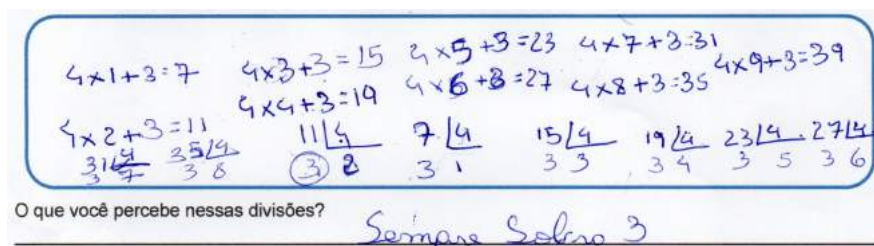 4x1+3=7 4x3+3=15 4x5+3=23 4x7+3=31 4x9+3=39
4x4+3=19 4x6+3=27 4x8+3=35
4x2+3=11 11|4 7|4 15|4 19|4 23|4 27|4
3 2 3 1 3 3 3 4 3 5 3 6
31|4 35|4
3 7 3 8
O que você percebe nessas divisões?
Sempre Sobra 3